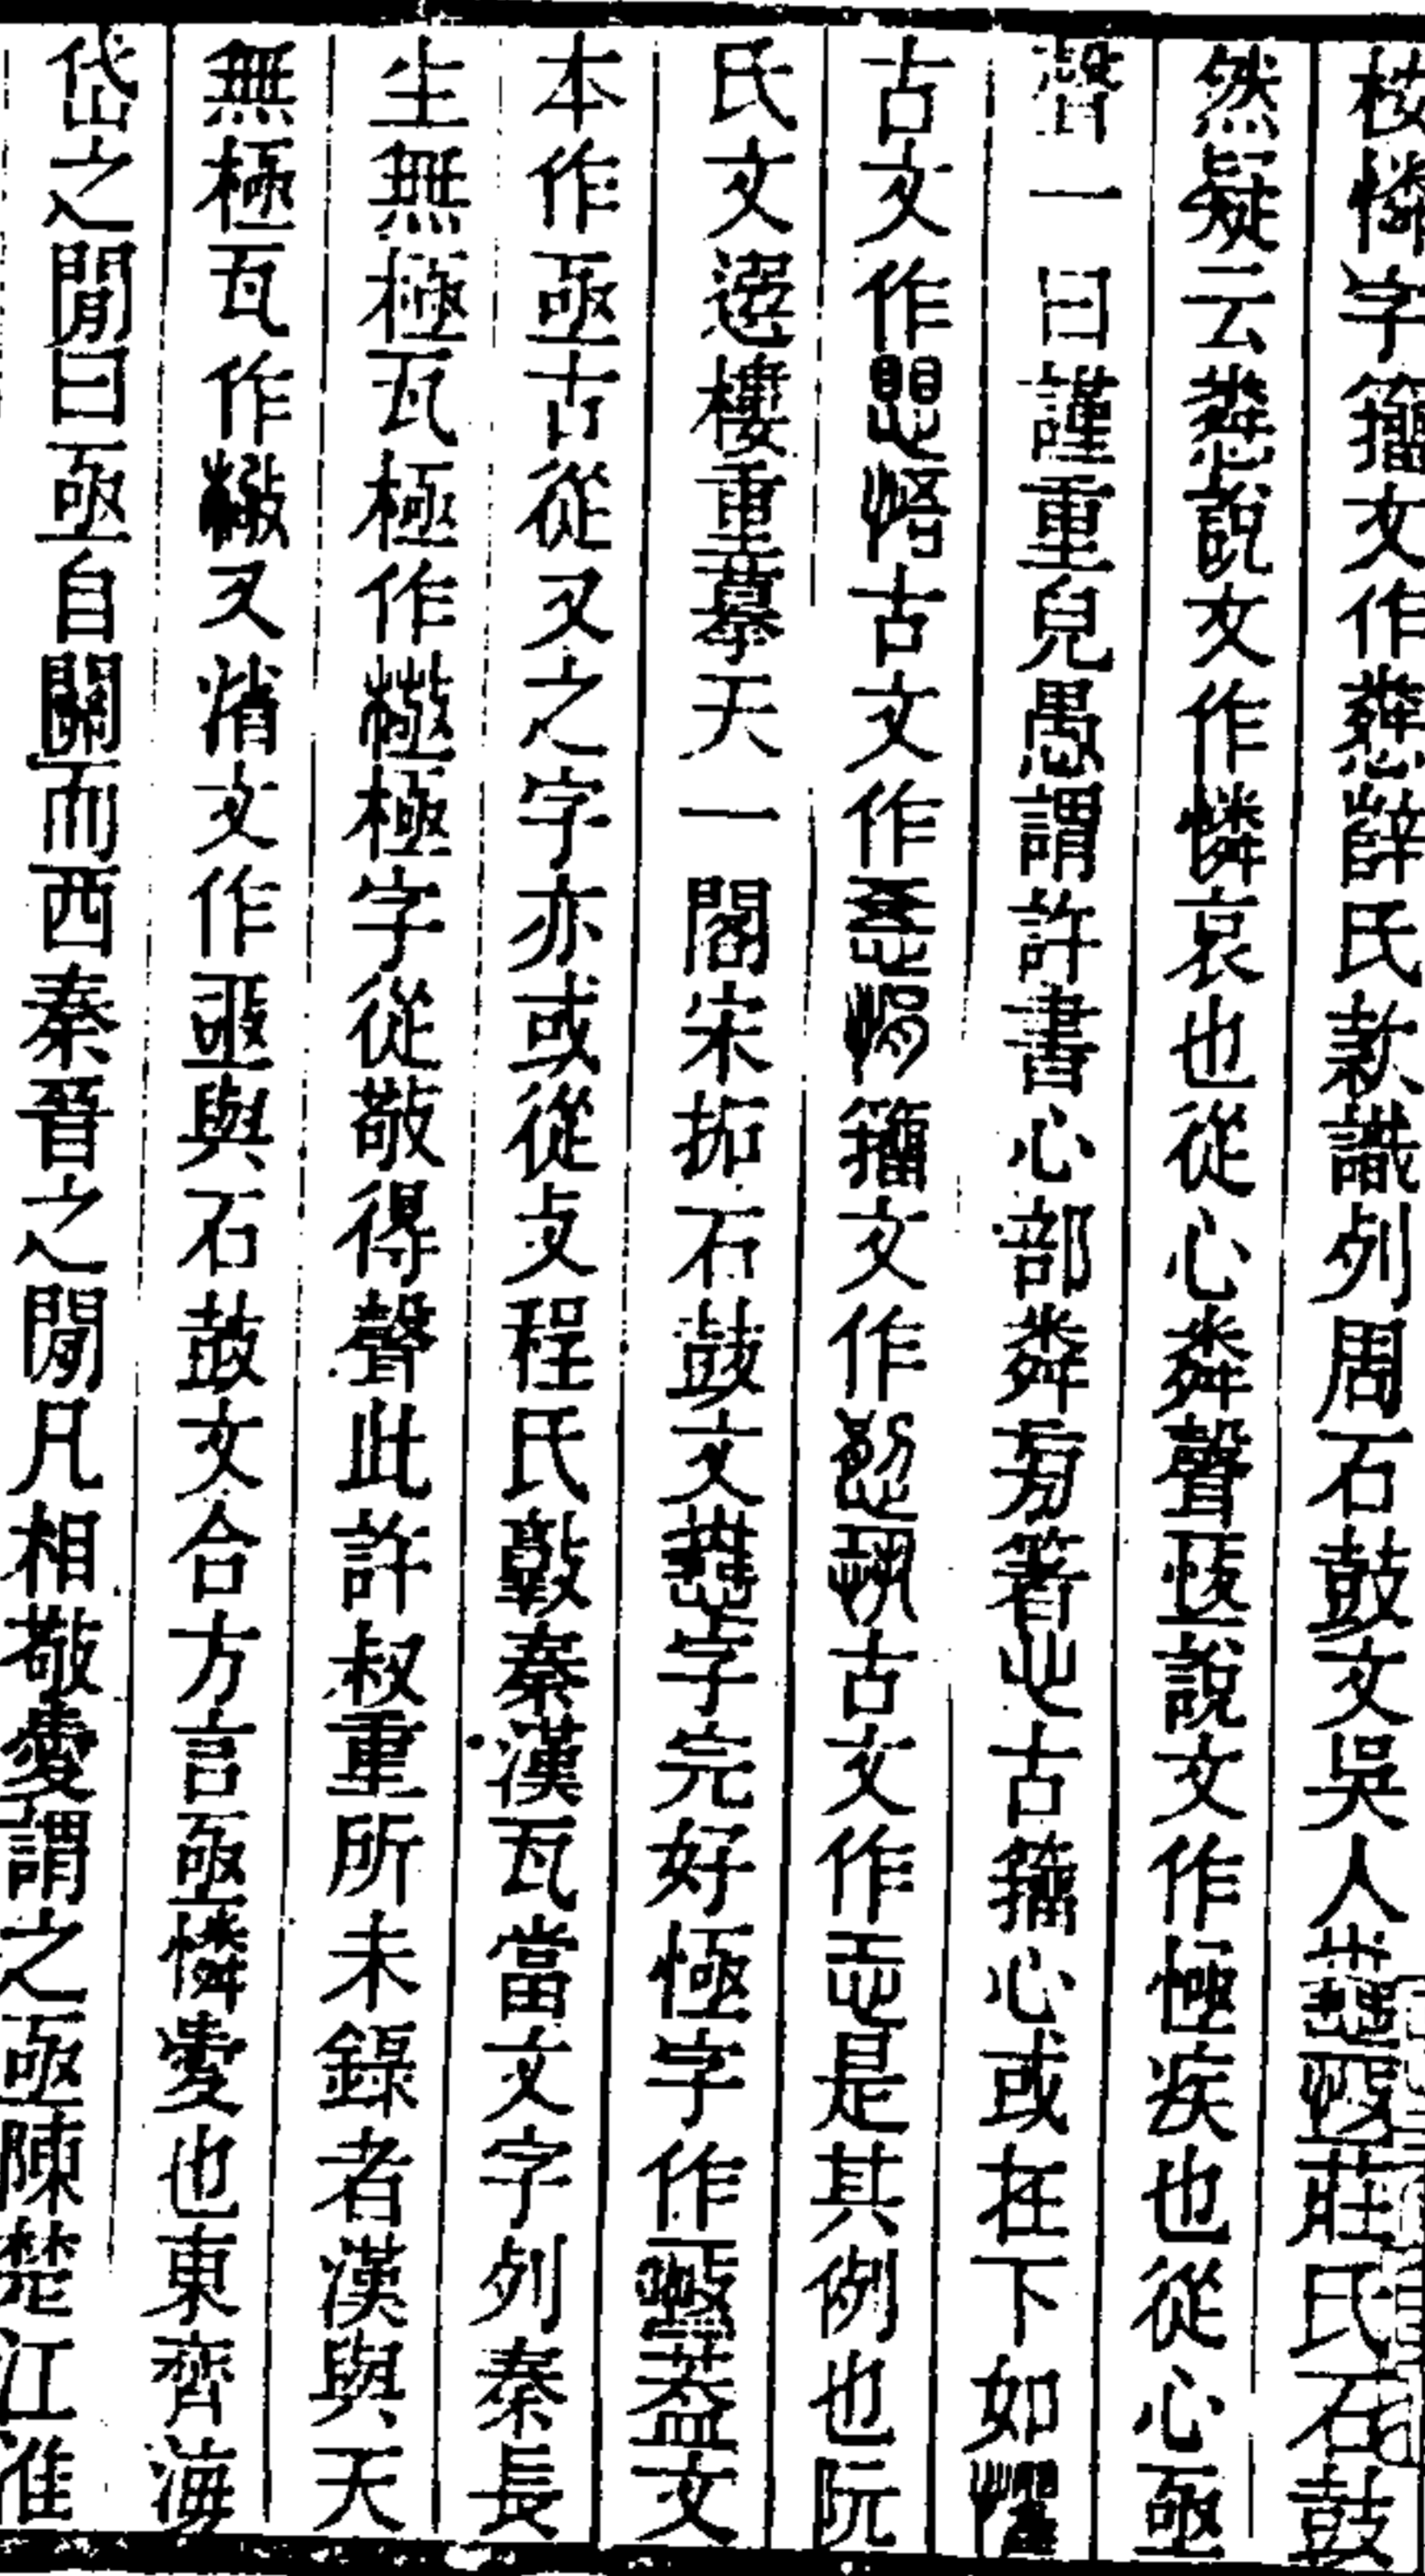 桉憐字籀文作㷠薛氏款識列周石鼓文吳人憐亟莊氏石鼓
然疑云㷠說文作憐哀也從心粦聲亟說文作㥛疾也從心亟
聲一曰謹重皃愚謂許書心部粦㫄箸㞢古籀心或在下如懼
古文作愳悟古文作㤳惰籀文作愆恐古文作㤟是其例也阮
氏文選樓重摹天一閣宋拓石鼓文㷠字完好㥛字作蓋文
本作亟古從又之字亦或從攴程氏敦秦漢瓦當文字列秦長
生無極瓦極作極字從敬得聲此許叔重所未錄者漢與天
無極瓦作又漪文作與石鼓文合方言亟憐愛也東齊海
岱之閒曰亟自關而西秦晉之閒凡相敬愛謂之亟陳楚江淮